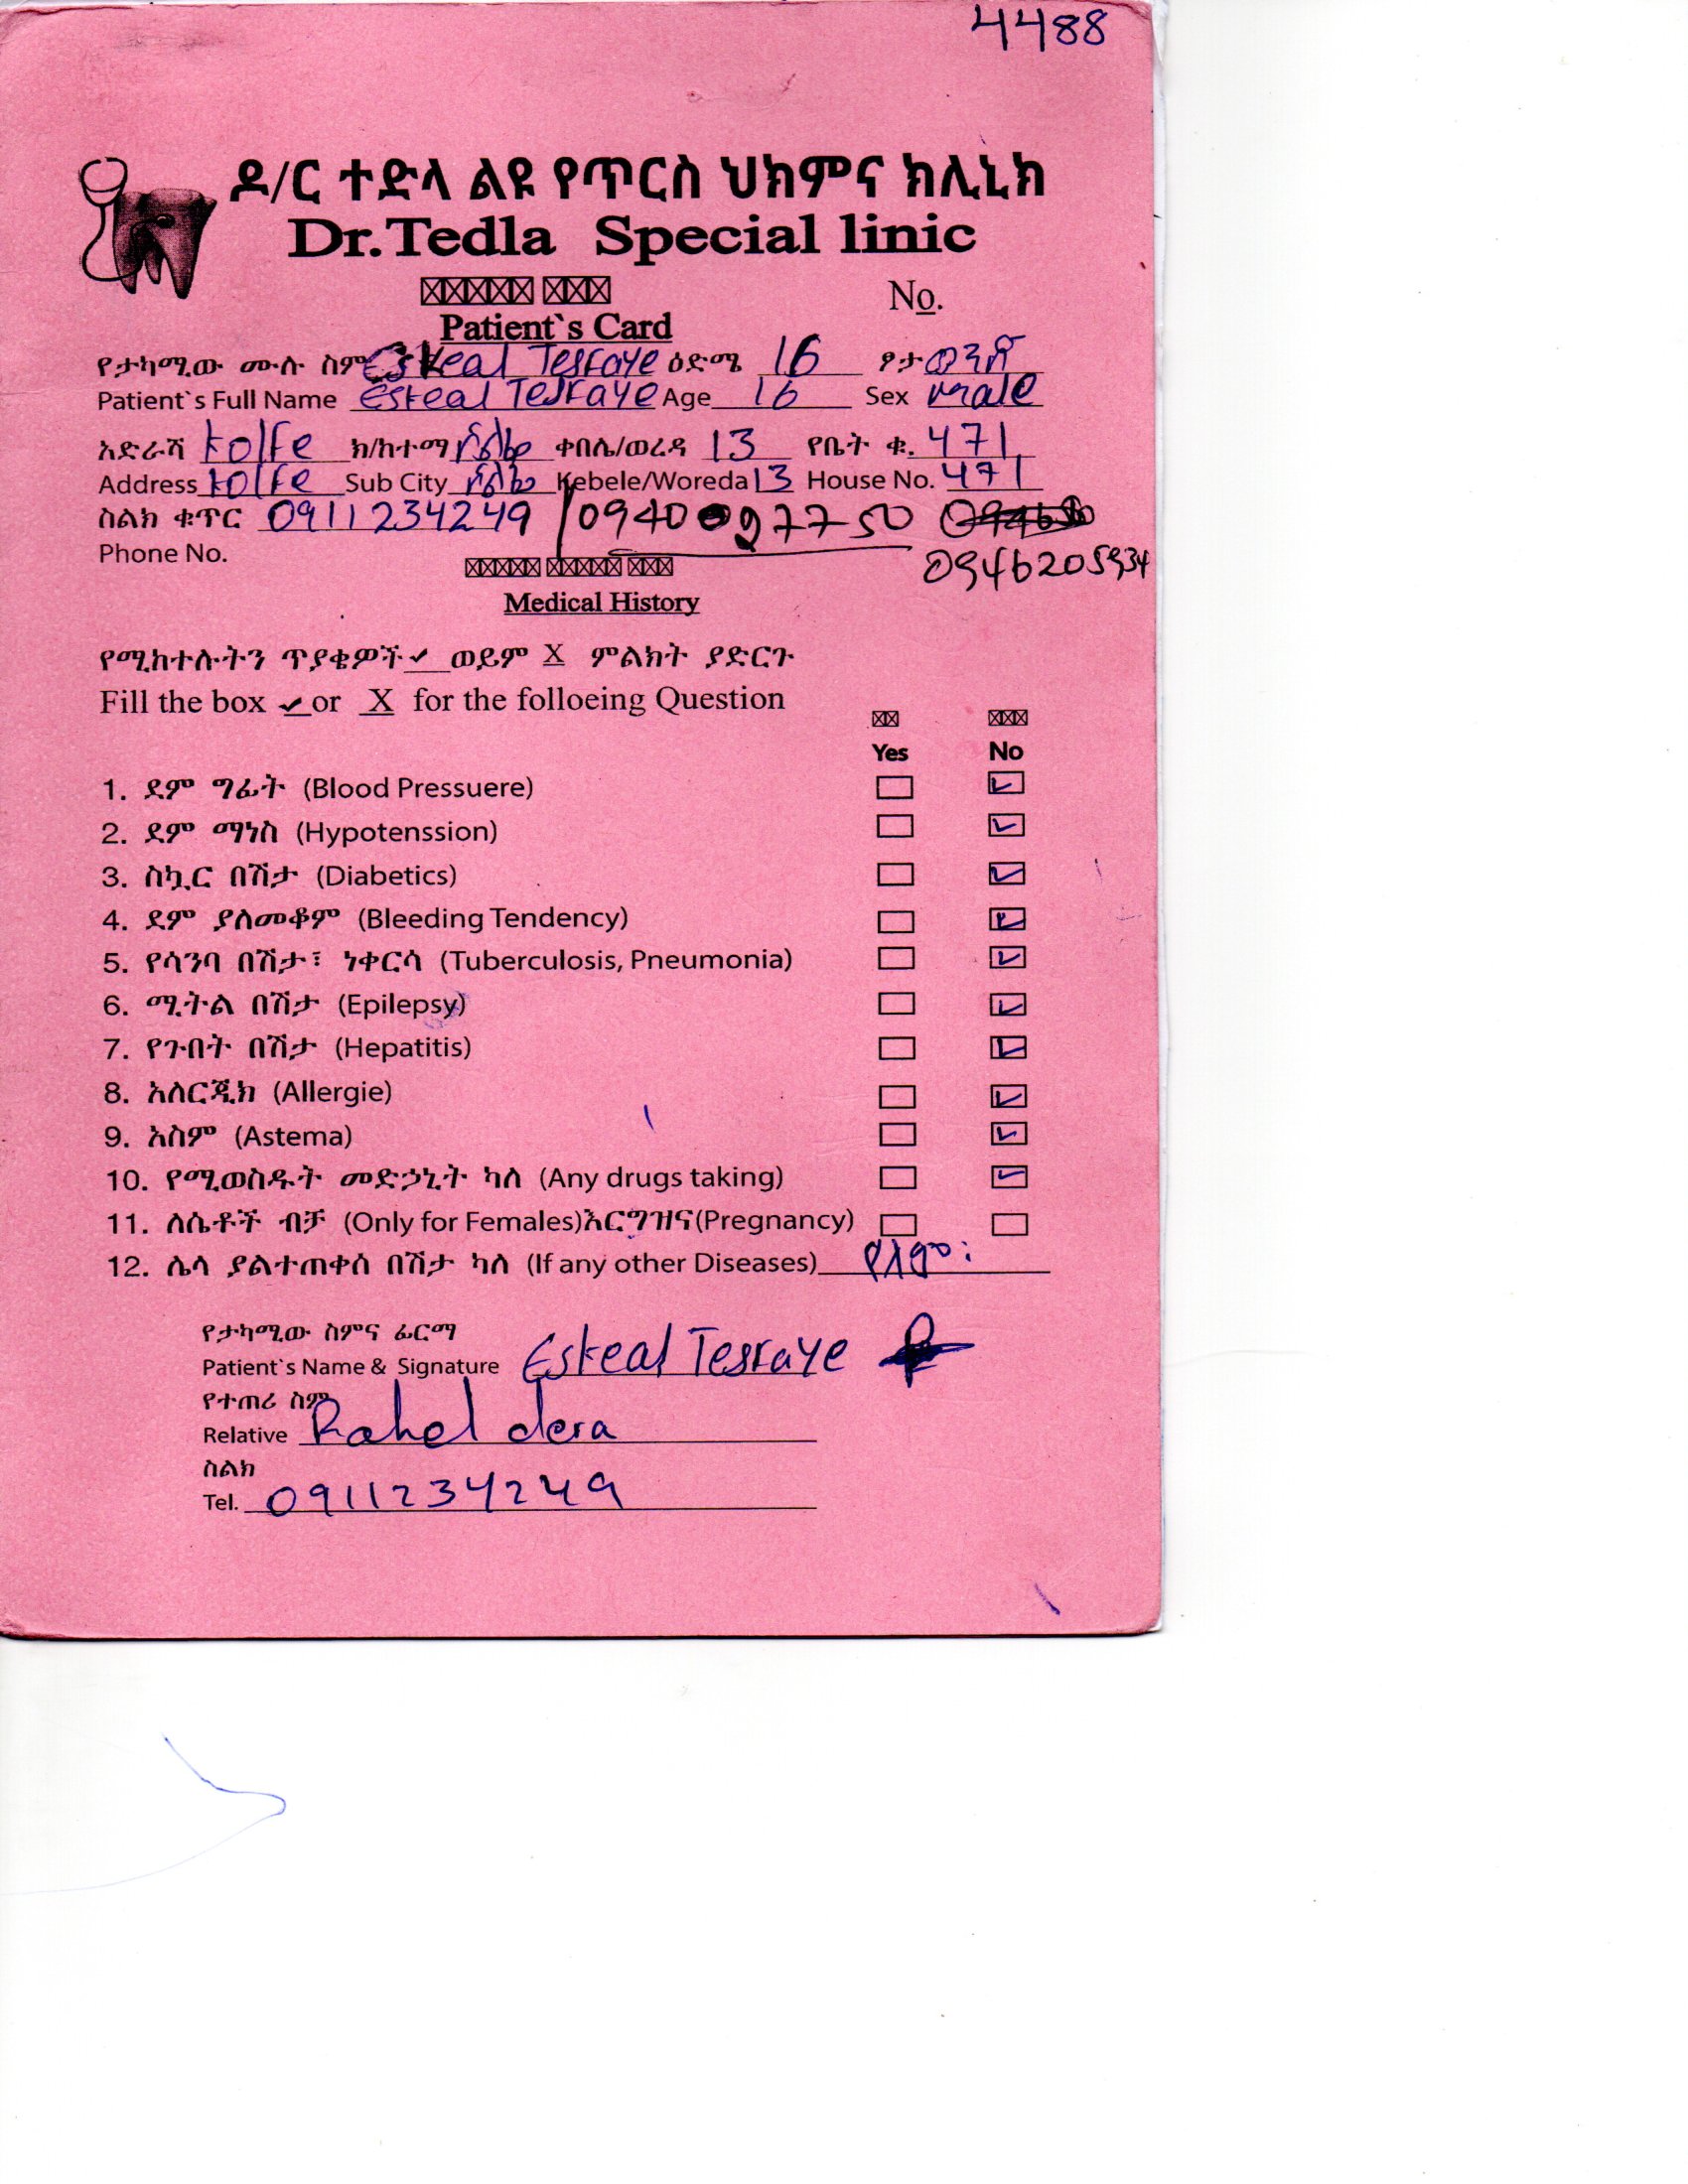 4488
ዶ/ር ተድላ ልዩ የጥርስ ህክምና ክሊኒክ
Dr.Tedla Special linic
No.
Patient`s Card
የታካሚው ሙሉ ስም Eskeal Tesfaye ዕድሜ 16 ፆታ ወንድ
Patient`s Full Name Eskeal Tesfaye Age 16 Sex male
አድራሻ kolfe ክ/ከተማ ቀበሌ/ወረዳ 13 የቤት ቁ. 471
Address kolfe Sub City Kebele/Woreda 13 House No. 471
ስልክ ቁጥር 0911234249 / 0940097750
Phone No. 0946205934
Medical History
የሚከተሉትን ጥያቄዎች ✓ ወይም X ምልክት ያድርጉ
Fill the box ✓ or X for the folloeing Question
Yes No
1. ደም ግፊት (Blood Pressuere) ✓
2. ደም ማነስ (Hypotenssion) ✓
3. ስኳር በሽታ (Diabetics) ✓
4. ደም ያለመቆም (Bleeding Tendency) ✓
5. የሳንባ በሽታ፣ ነቀርሳ (Tuberculosis, Pneumonia) ✓
6. ሚትል በሽታ (Epilepsy) ✓
7. የጉበት በሽታ (Hepatitis) ✓
8. አለርጂክ (Allergie) ✓
9. አስም (Astema) ✓
10. የሚወስዱት መድኃኒት ካለ (Any drugs taking) ✓
11. ለሴቶች ብቻ (Only for Females)እርግዝና(Pregnancy)
12. ሌላ ያልተጠቀሰ በሽታ ካለ (If any other Diseases) የለም፡
የታካሚው ስምና ፊርማ
Patient`s Name & Signature Eskeal Tesfaye
የተጠሪ ስም
Relative Rahel dera
ስልክ
Tel. 0911234249